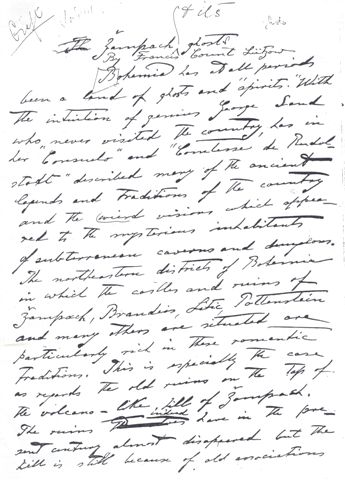 The Žampach ghosts
By Francis Count Lützow
Bohemia has at all periods
been a land of ghosts and "spirits." With
the intuition of genius George Sand
who never visited the country, has in
her "Consuelo" and "Comtesse de Rudol
stadt" described many of the ancient
legends and traditions of the country
and the weird visions which appea-
red to the mysterious inhabitants
of subterranean caverns and dungeons.
The northeastern districts of Bohemia
in which the castles and ruins of
Žampach, Brandeis, Litic Pottenstein
and many others are situated are
particularly rich in these romantic
traditions. This is especially the case
as regards the old ruins on the top of
the volcano-like hill of Žampach.
The ruins indeed have in the pre-
sent century almost disappeared but the
hill is still because of old associations